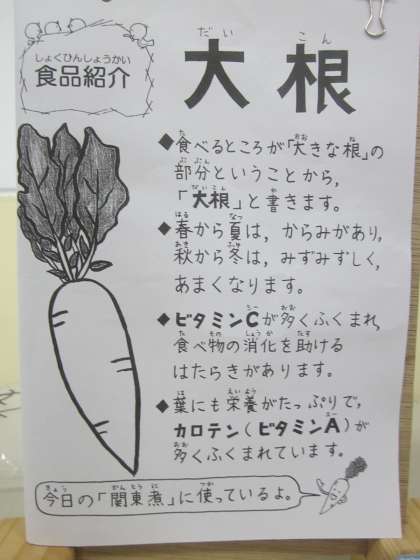 食品紹介
大根
◆食べるところが「大きな根」の
部分ということから，
「大根」と書きます。
◆春から夏は，からみがあり，
秋から冬は，みずみずしく，
あまくなります。
◆ビタミンCが多くふくまれ
食べ物の消化を助ける
はたらきがあります。
◆葉にも栄養がたっぷりで，
カロテン(ビタミンA)が
多くふくまれています。
今日の「関東煮」に使っているよ。